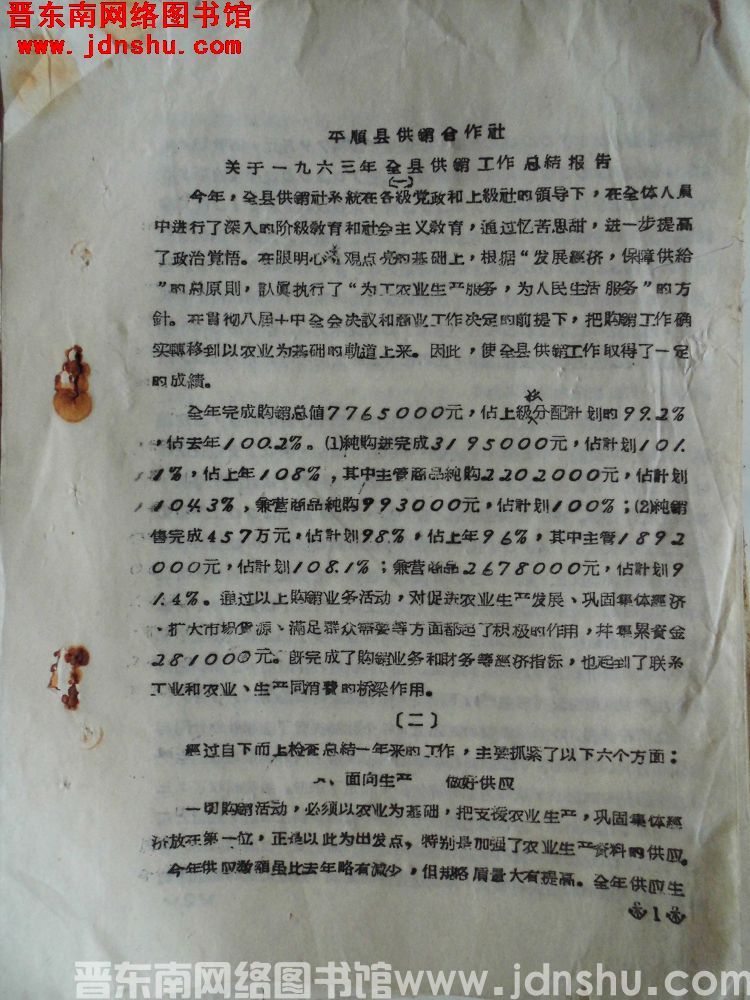 晋东南网络图书馆
www.jdnshu.com
平順县供銷合作社
关于一九六三年全县供銷工作总結报告
(一)
今年，全县供銷社系統在各級党政和上級社的領导下，在全体人員
中进行了深入的阶級敎育和社会主义敎育，通过忆苦思甜，进一步提高
了政治覚悟。在眼明心 观点亮的基础上，根据“发展經济，保障供給
”的总原則，認眞执行了“为工农业生产服务，为人民生活服务”的方
針。在貫彻八届十中全会决议和商业工作决定的前提下，把购銷工作确
实轉移到以农业为基础的軌道上来。因此，使全县供銷工作取得了一定
的成績。
全年完成购銷总值7765000元，佔上級分配計划的99.2%
，佔去年100.2%。⑴純购进完成3195000元，佔計划101.
1%，佔上年108%，其中主管商品純购2202000元，佔計划
104.3%，兼营商品純购993000元，佔計划100%；⑵純銷
售完成457万元，佔計划98%，佔上年96%，其中主管1892
000元，佔計划108.1%；兼营商品2678000元，佔計划9
1.4%。通过以上购銷业务活动，对促进农业生产发展、巩固集体經济
、扩大市場貨源、滿足群众需要等方面都起了积极的作用，幷累資金
281000元。旣完成了购銷业务和財务等經济指标，也起到了联系
工业和农业、生产同消費的桥梁作用。
(二)
經过自下而上检查总結一年来的工作，主要抓紧了以下六个方面：
一、面向生产 做好供应
一切购銷活动，必须以农业为基础，把支援农业生产，巩固集体經
济放在第一位，正是以此为出发点，特別是加强了农业生产資料的供应。
今年供应数額虽比去年略有减少，但規格质量大有提高。全年供应生
1
晋东南网络图书馆www.jdnshu.com